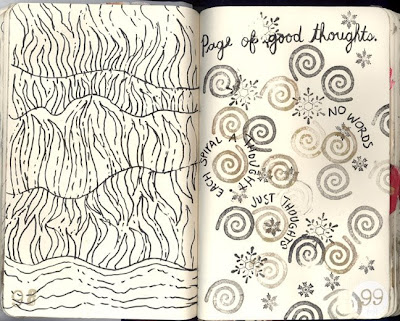 Page of good thoughts.
NO WORDS
EACH SPIRAL A THOUGHT.
JUST THOUGHTS
98
99